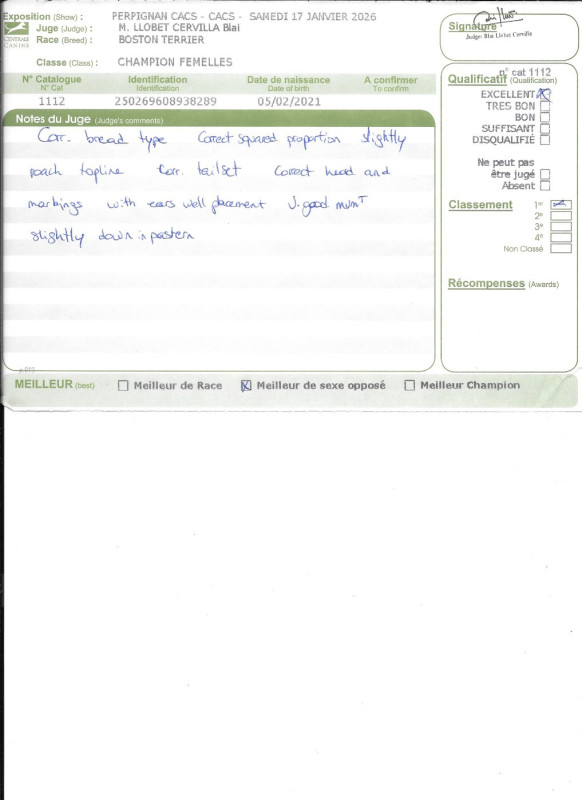 Exposition (Show) : PERPIGNAN CACS - CACS - SAMEDI 17 JANVIER 2026
Juge (Judge) : M. LLOBET CERVILLA Blai
Race (Breed) : BOSTON TERRIER
CENTRALE CANINE
Classe (Class) : CHAMPION FEMELLES
Signature
Judge: Blai Llobet Cervilla
N° Catalogue Identification Date de naissance A confirmer
N° Cat Identification Date of birth To confirm
1112 250269608938289 05/02/2021
Notes du Juge (Judge's comments)
Corr. bread type Correct squared proportion slightly
roach topline Corr. tailset Correct head and
markings with ears well placement V. good mvmT
slightly down in pastern
n° cat 1112
Qualificatif (Qualification)
EXCELLENT
TRES BON
BON
SUFFISANT
DISQUALIFIÉ
Ne peut pas
être jugé
Absent
Classement 1er
2e
3e
4e
Non Classé
Récompenses (Awards)
MEILLEUR (best) Meilleur de Race Meilleur de sexe opposé Meilleur Champion